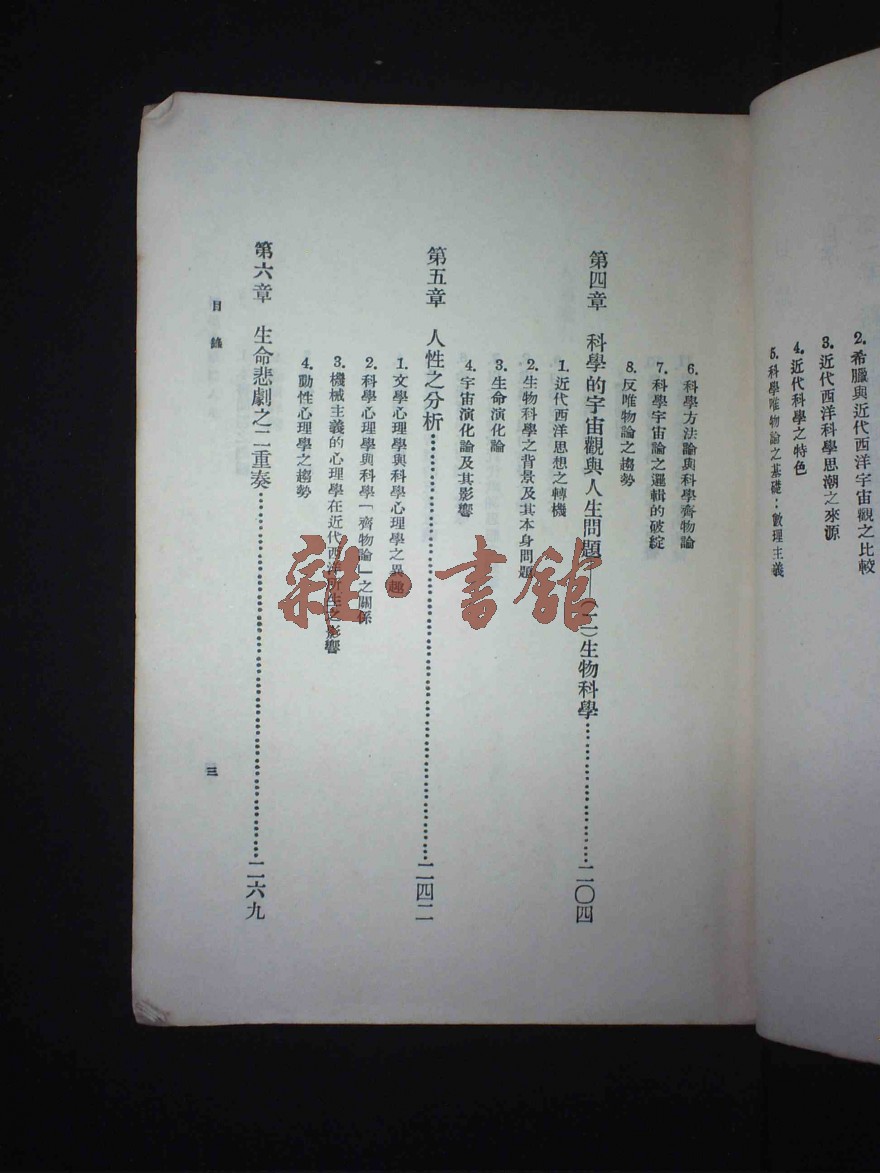 2. 希臘與近代西洋宇宙觀之比較
3. 近代西洋科學思潮之來源
4. 近代科學之特色
5. 科學唯物論之基礎：數理主義
6. 科學方法論與科學齊物論
7. 科學宇宙論之邏輯的破綻
8. 反唯物論之趨勢
第四章 科學的宇宙觀與人生問題——(二)生物科學……………………二〇四
1. 近代西洋思想之轉機
2. 生物科學之背景及其本身問題
3. 生命演化論
4. 宇宙演化論及其影響
第五章 人性之分析……………………二四二
1. 文學心理學與科學心理學之異趣
2. 科學心理學與科學「齊物論」之關係
3. 機械主義的心理學在近代西洋所生之影響
4. 動性心理學之趨勢
第六章 生命悲劇之二重奏……………………二六九
目錄
三
雜·書館